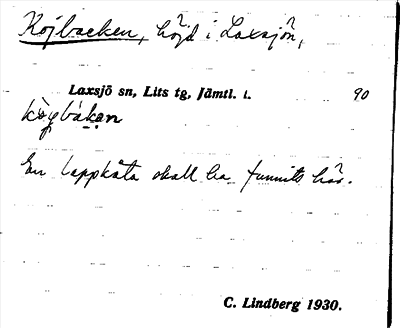 Kojbacken, höjd i Laxsjön,
Laxsjö sn, Lits tg, Jämtl. l. 90
En lappkåta skall ha funnits här.
C. Lindberg 1930.